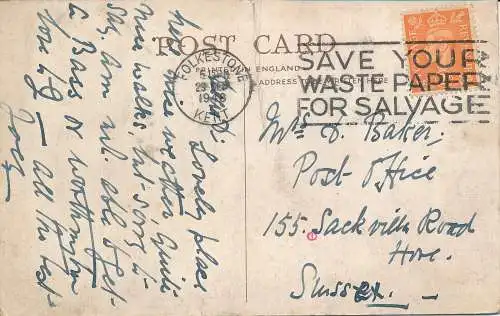 POST CARD
PRINTED IN ENGLAND
ADDRESS
FOLKESTONE
KENT
SAVE YOUR
WASTE PAPER
FOR SALVAGE
Mrs A. Baker,
Post Office
155. Sackville Road
Hove.
Sussex.
Lovely place
here, nice weather, quite
nice walks, but sorry to
say, am not able to get
to Bars or Worthing
for 4/9 - all the best